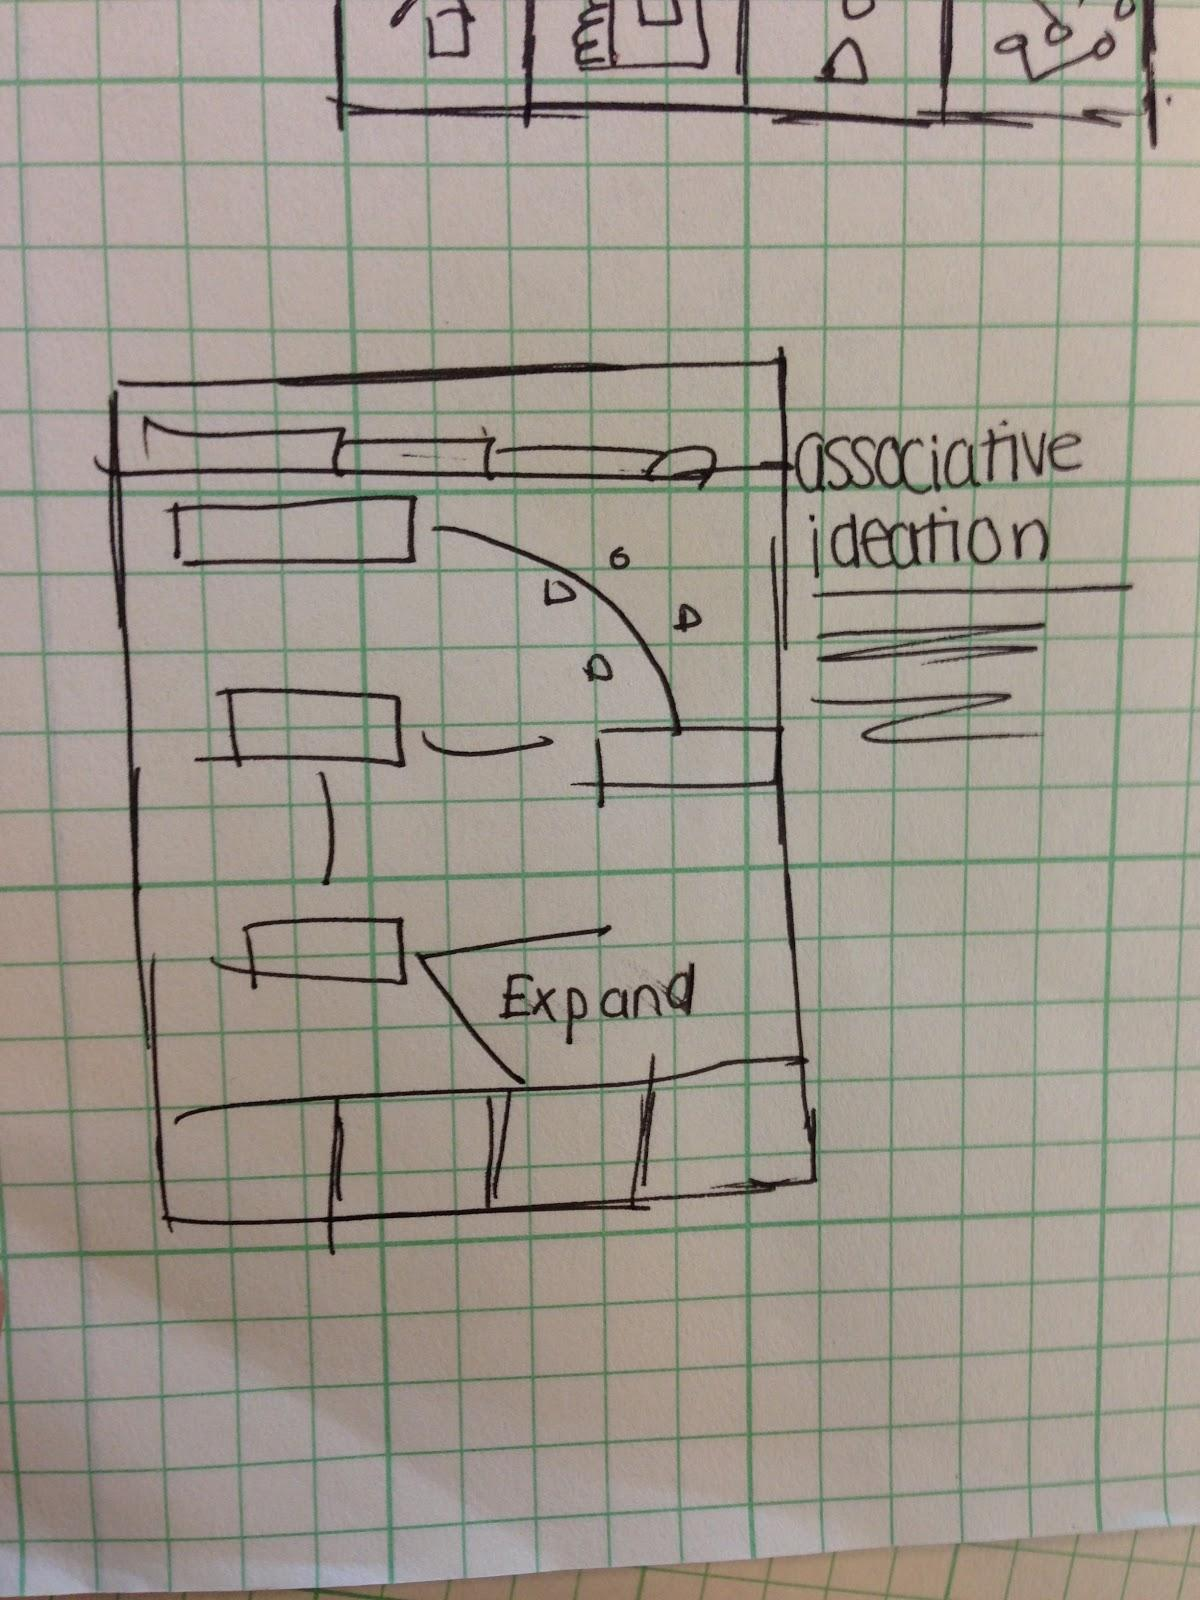 associative
ideation
Expand